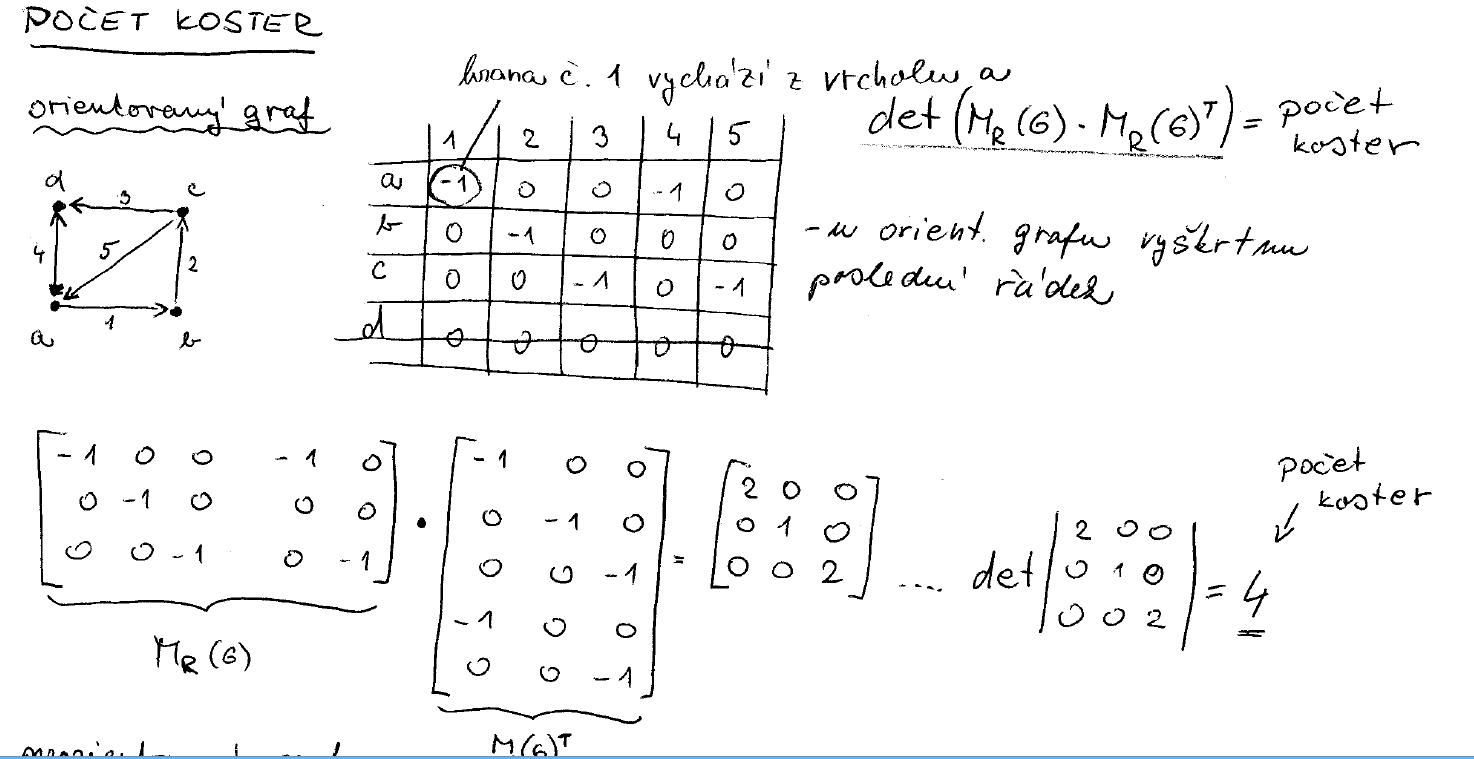 POČET KOSTER
hrana č. 1 vychází z vrcholu a
orientovaný graf
det (M_R(G) · M_R(G)^T) = počet
koster
1 2 3 4 5
a -1 0 0 -1 0
b 0 -1 0 0 0
c 0 0 -1 0 -1
d 0 0 0 0 0
d 3 c
4 5 2
a 1 b
- u orient. grafu vyškrtnu
poslední řádek
[-1 0 0 -1 0] [-1 0 0]
[0 -1 0 0 0] · [0 -1 0] = [2 0 0]
[0 0 -1 0 -1] [0 0 -1] [0 1 0]
[-1 0 0] [0 0 2]
[0 0 -1]
.... det |2 0 0|
|0 1 0| = 4
|0 0 2|
počet
koster
M_R(G)
M(G)^T